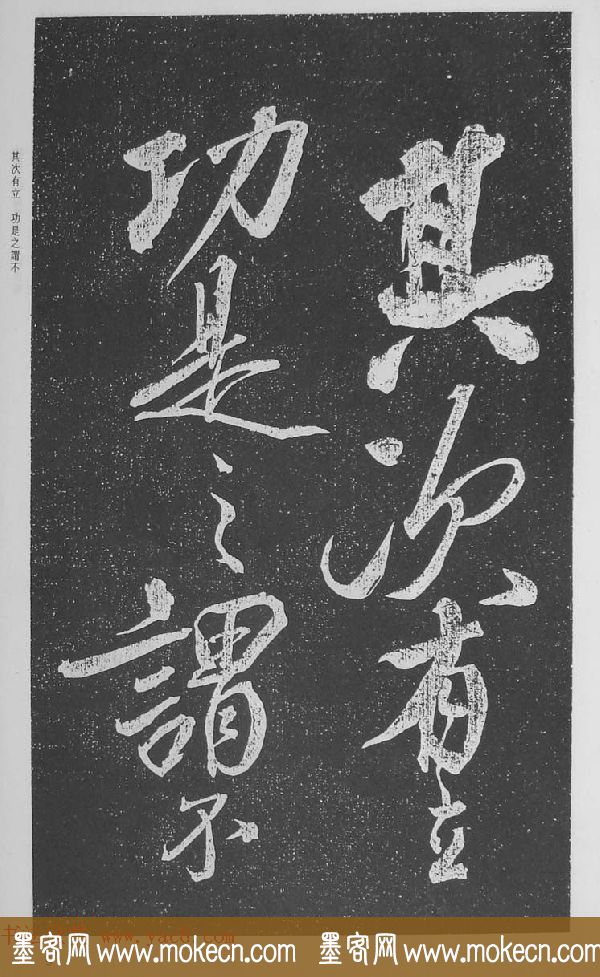 其次有立
功是之謂不
其次有立 功是之謂不
www.yac
墨客网 www.mokecn.com 墨客网 www.mokecn.com